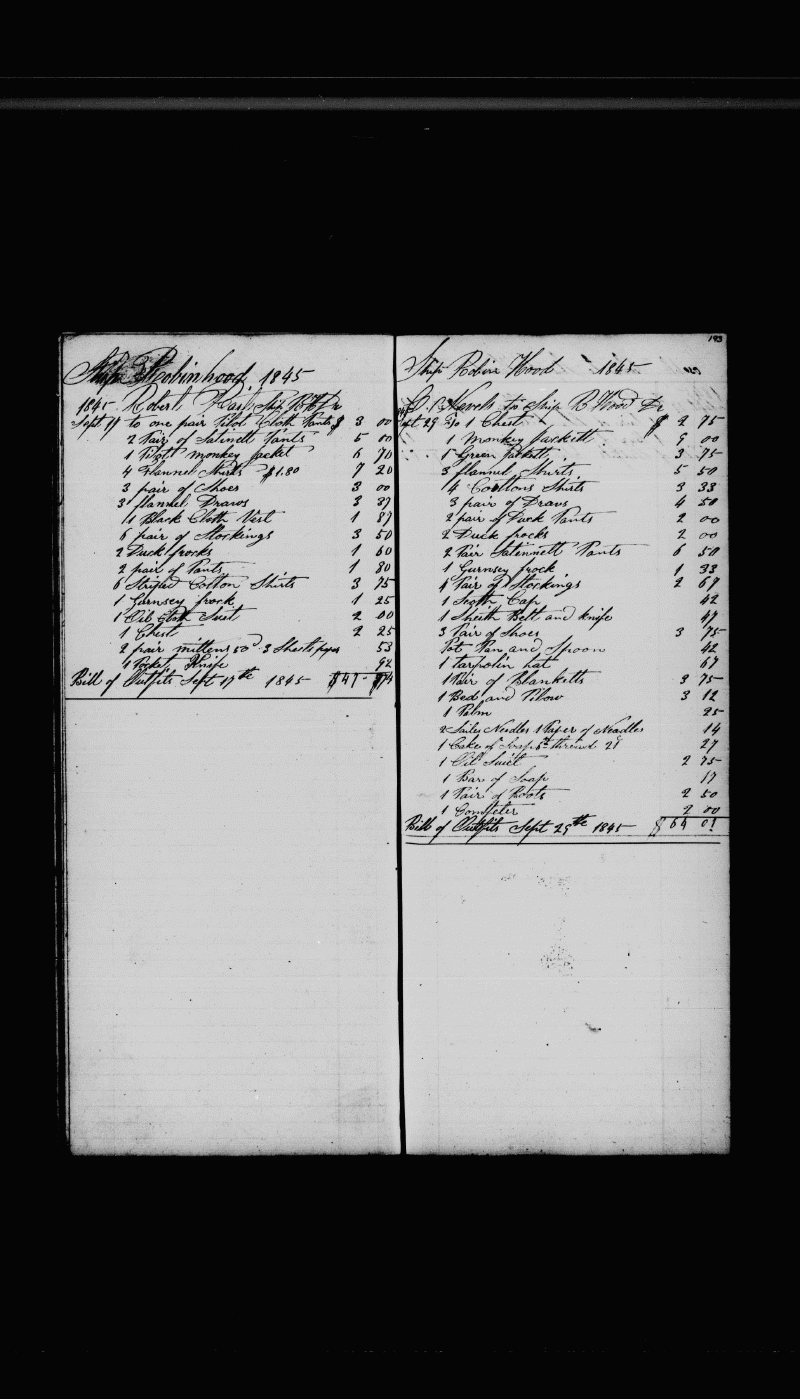 Ship Robinhood, 1845
1845 Robert Ship Dr
Sept 17 to one pair Pilot Cloth Pants $ 3 00
2 Pair of Satinett Pants 5 00
1 Pilot monkey jacket 6 70
4 Flannel Shirts $1.80 7 20
3 pair of Shoes 3 00
3 flannel Draws 3 87
1 Black Cloth Vest 1 87
6 pair of Stockings 3 50
2 Duck frocks 1 60
2 pair of Pants 1 80
6 Striped Cotton Shirts 3 75
1 Gurnsey frock 1 25
1 Oil Cloth Suit 2 00
1 Chest 2 25
2 pair mittens 50 3 Sheets paper 53
1 Pocket Knife 42
Bill of Outfits Sept 17th 1845 $47 74
193
Ship Robin Hood 1845
to Ship R Hood Dr
Sept 29 To 1 Chest $ 2 75
1 Monkey Jackett 9 00
1 Green Jackett 3 75
3 flannel Shirts 5 50
4 Cottons Shirts 3 33
3 pair of Draws 4 50
2 pair of Duck Pants 2 00
2 Duck frocks 2 00
2 Pair Satinnett Pants 6 50
1 Gurnsey frock 1 33
4 Pair of Stockings 2 67
1 Scoth Cap 42
1 Sheith Belt and knife 47
3 Pair of Shoes 3 75
Pot Pan and Spoon 42
1 tarpolin hat 67
1 Pair of Blanketts 3 75
1 Bed and Pilow 3 12
1 Palm 25
2 Sailes Needles 1 Paper of Neadles 14
1 Cake of Soap thread 27
1 Oil Suiet 2 75
1 Bar of Soap 17
1 Pair of Boots 2 50
1 Comfeter 2 00
Bill of Outfits Sept 29th 1845 $ 64 01